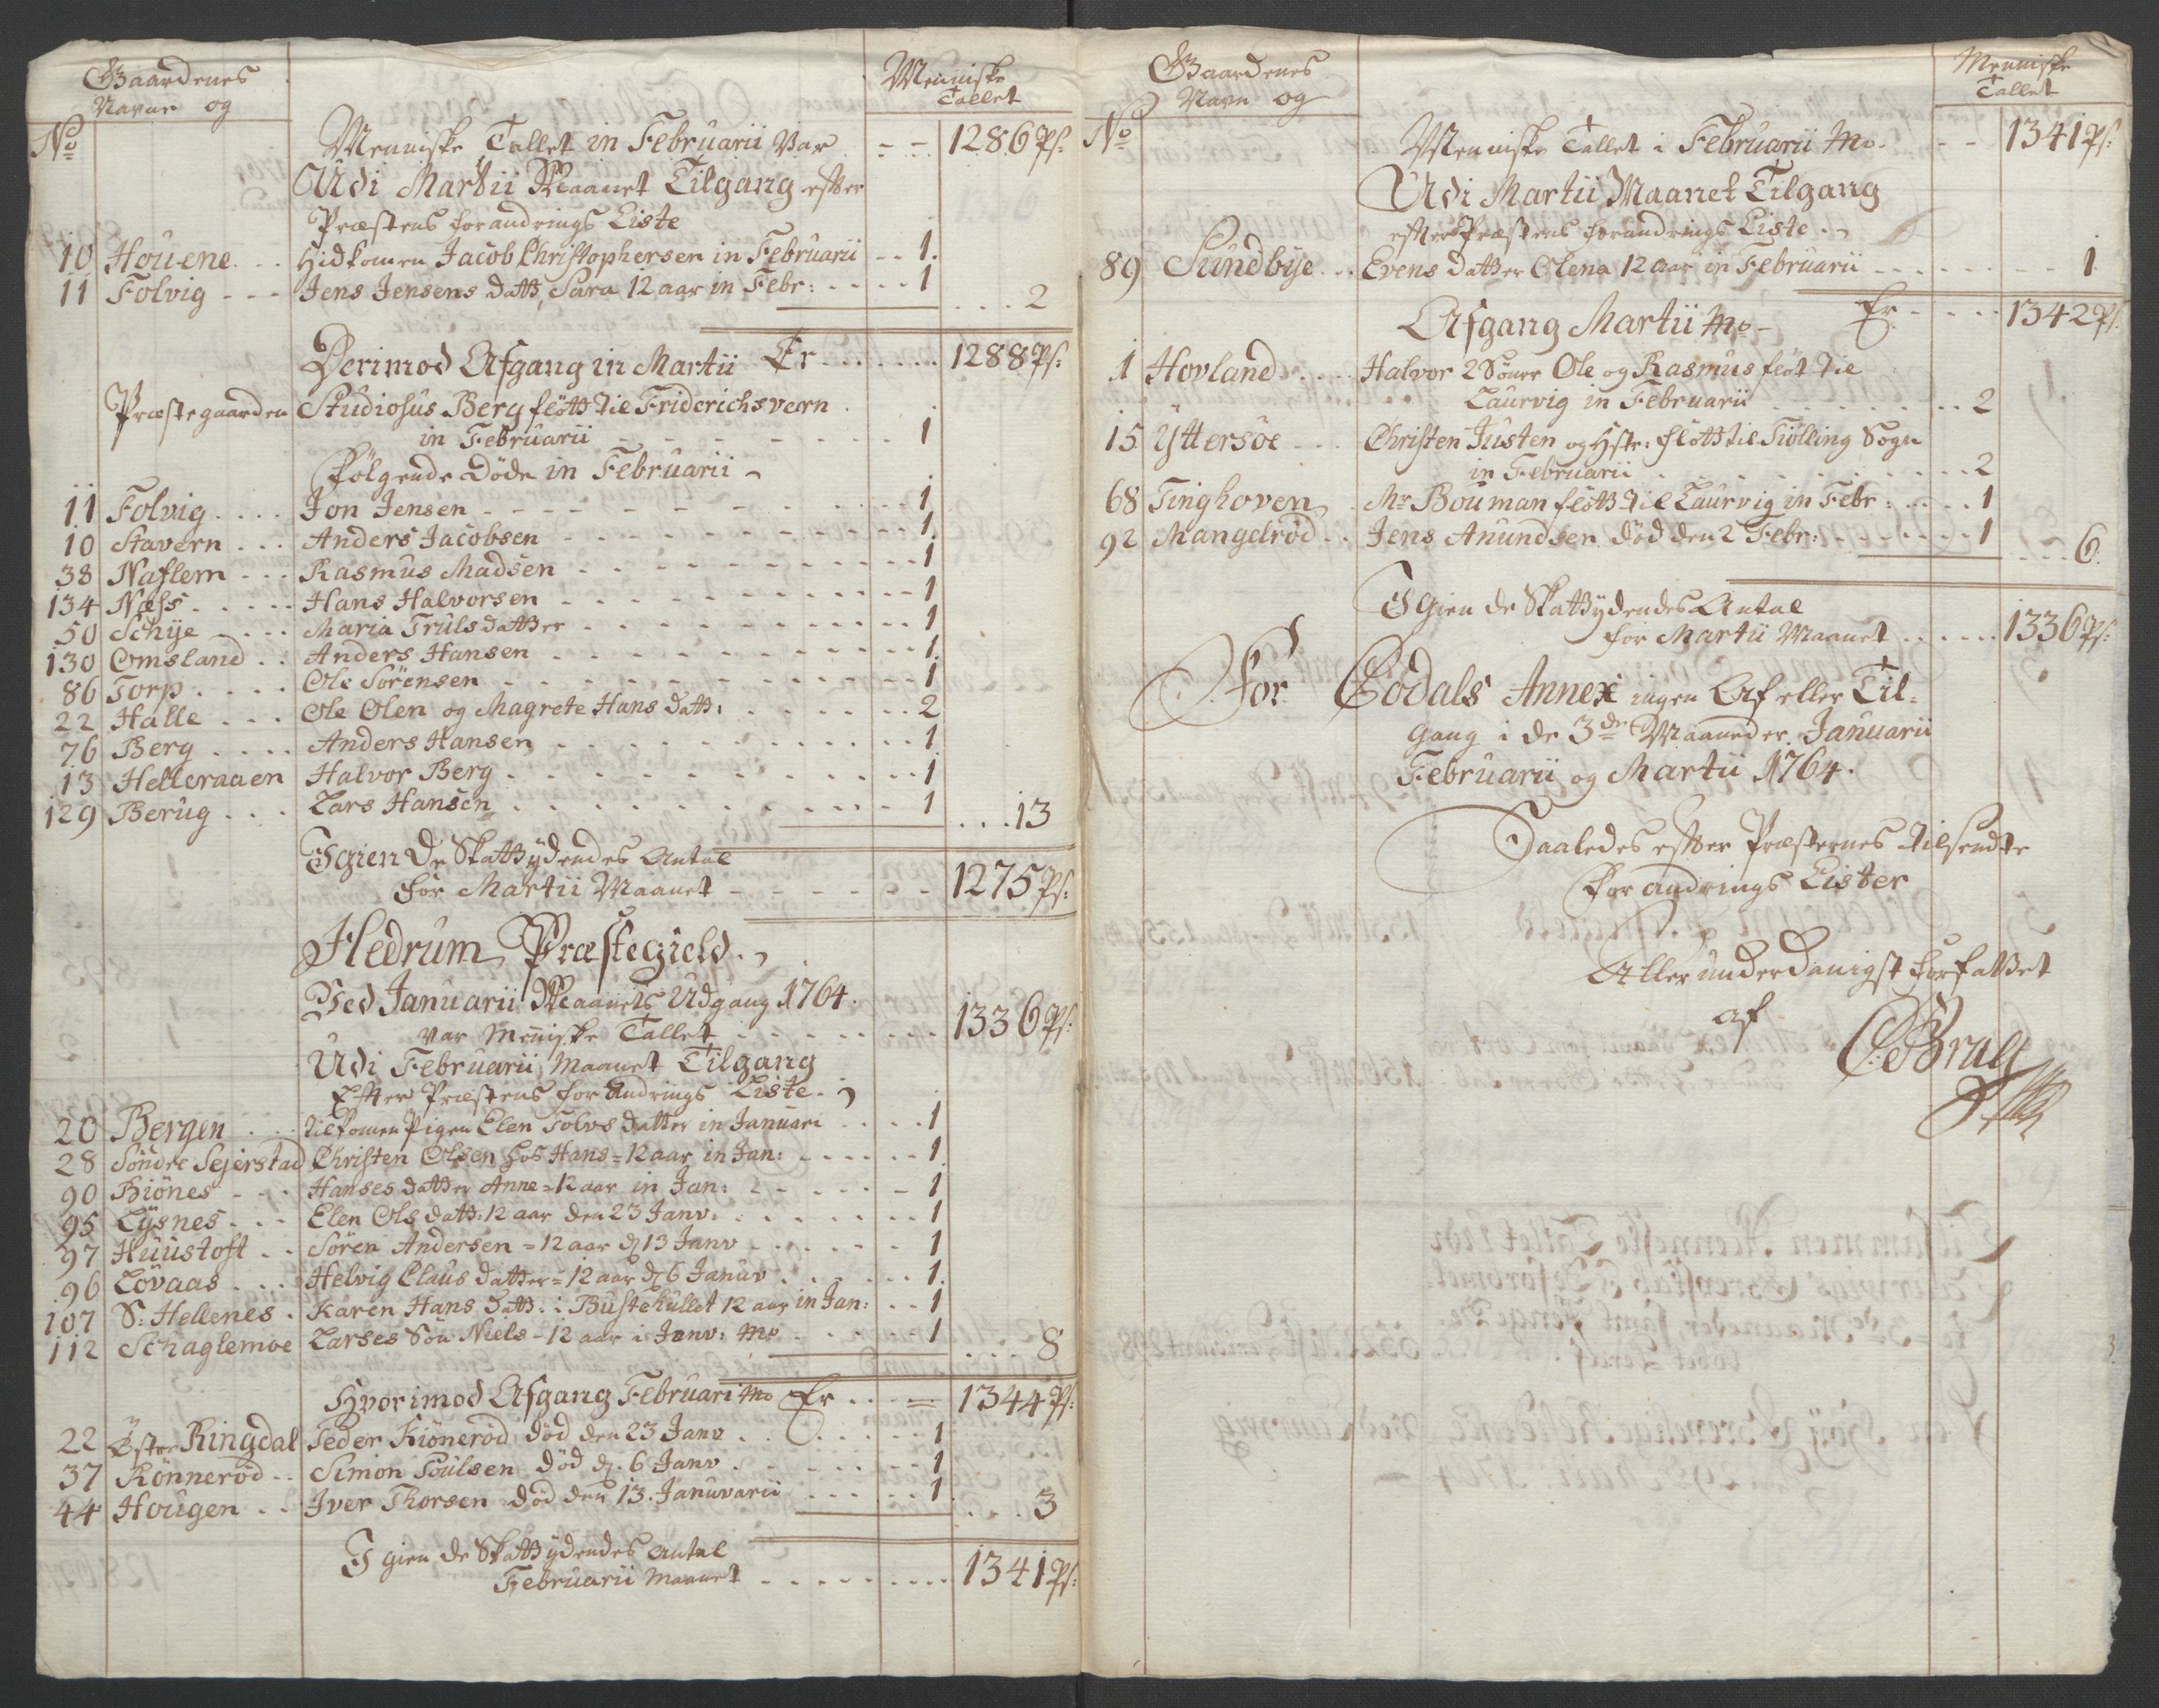 Gaardenes
Navne og
No
Menniske
Tallet
Menniske Tallet in Februarii Var - - 1286 Ps:
Udi Martii Maanet Tilgang efter
Præstens forandrings Liste
10 Houene. - - Hidkomen Jacob Christophersen in Februarii - - 1.
11 Folvig - - - Jens Jensens datt, Sara 12 aar in Febr: - - - - 1
. . . 2
Er . . . . . . . 1288 Ps:
Derimod Afgang in Martii
Præstegaarden Studiosus Berg flött til Friderichsvern
in Februarii - - - - - - - - 1
Fölgende Döde in Februarii -
11 Folvig . . . . Jon Jensen - - - - - - - - - 1
10 Stavern . . . Anders Jacobsen - - - - - - - - 1
38 Naflem - - - Rasmus Madsen - - - - - - - - 1
134 Næss . . . . . Hans Halvorsen - - - - - - - - 1
50 Schÿe - - - - Maria Truls datter - - - - - - - - 1
130 Omsland . . Anders Hansen - - - - - - - - 1.
86 Torp . . . . Ole Sörensen - - - - - - - - 1
22 Halle . . . Ole Olen og Magrete Hans datt: . . . . . . 2
76 Berg . . . . Anders Hansen - - - - - - - - 1
13 Helleraaen Halvor Berg . . . . . . . . . . 1
129 Berug . . . Lars Hansen . . . . . . . . . . 1
. . . 13
Igien de Skattÿdendes Antal
for Martii Maanet - - - - - - 1275 Ps:
Hedrum Præstegield.
Ved Januarii Maanets Udgang 1764.
var Meniske Tallet . . . . . . . . 1336 Ps:
Udi Februarii Maanet Tilgang
Efter Præstens forandrings Liste.
20 Bergen . . . tilkomen Pigen Elen Tolvs datter in Januari . . . . 1
28 Söndre Sejerstad Christen Olsen hos Hans = 12 aar in Jan: - - - - - - 1
90 Biönes - - - Hanses datter Anne = 12 aar in Jan: - - - - - - 1
95 Lÿsnes . . - Elen Ols datt: 12 aar den 23 Janv: . . . . . . 1
97 Huustoft . . Sören Andersen = 12 aar d 13 Janv - - - - - - 1
96 Lövaas . . . Helvig Claus datter = 12 aar d 6 Januv . . . . . . 1.
107 S: Hellenes . Karen Hans datt: i Bustekullet 12 aar in Jan: . . 1
112 Schaglemoe Larses Sön Niels - 12 aar i Janv: Mo . . . . . 1
. . . 8
Hvorimod Afgang Februari Mo Er . . . = 1344 Ps:
22 Öster Ringdal Peder Kiönerod död den 23 Janv . . . . . . 1
37 Rönneröd - - Simon Poulsen död d. 6 Janv . . . . . . 1
44 Hougen . . Iver Thorsen död den 13. Januvarii . . . . . . 1
. . . 3
Igien de Skattÿdendes Antal
Februarii Maanet . . . . . . . . . 1341 Ps:
Gaardenes
Navn og
No
Menniske
Tallet
Menniske Tallet i Februarii Mo. - - 1341 Ps:
Udi Martii Maanet Tilgang
efter Præstens forandrings Liste.
89 Sundbÿe . . . Evens datter Olena 12 aar in Februarii - - - - - - - 1
Er - - - - 1342 Ps.
Afgang Martii Mo -
1 Hovland . . . . Halvor 2 Sönner Ole og Rasmus flöt til
Laurvig in Februarii . . . . . . . . 2
15 Ÿttersöe - - - Christen Justen og Hstr: flött til Tiölling Sogn
in Februarii . . . . . . . . . . 2
68 Tinghoven . Mr Bouman flött til Laurvig in Febr: . . . . 1
92 Mangelröd - - Jens Anundsen död den 2 Febr: - - - - - - - 1
. . . 6.
Igien de Skattÿdendes Antal
for Martii Maanet . . . . . . 1336 Ps:
For Qodals Annexi ingen Af eller Til-
gang i de 3de Maaneder, Januarii
Februarii og Martii 1764.
Saaledes efter Præsternes tilsendte
forandrings Lister
Allerunderdanigst forfattet
af